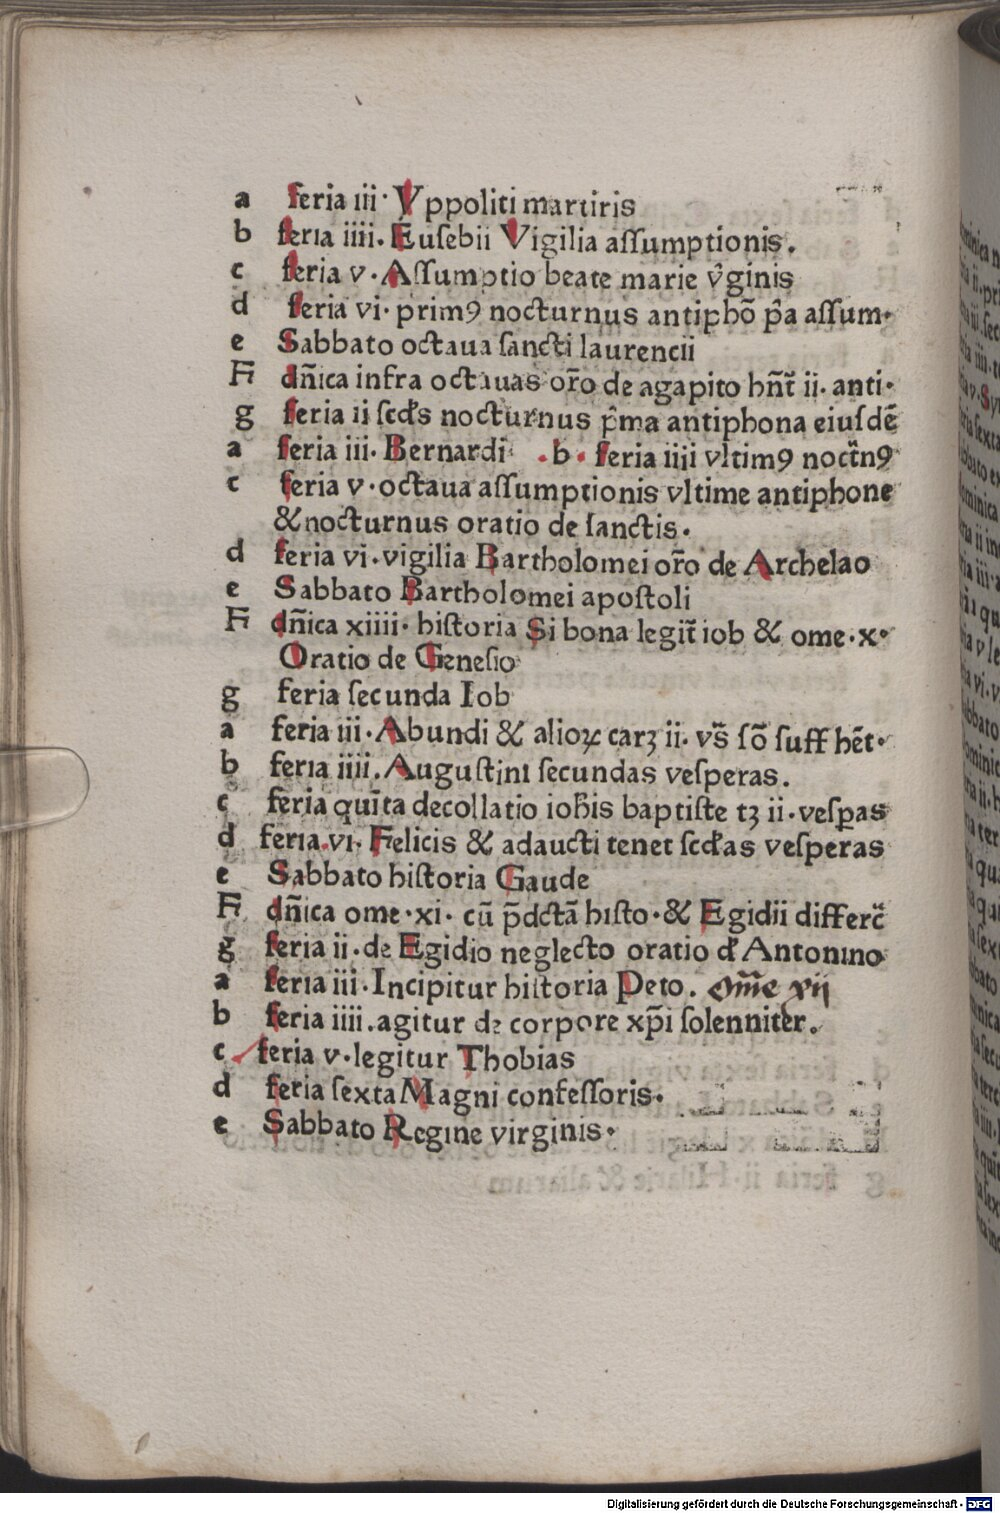 a feria iii· Yppoliti martiris
b feria iiii. Euſebii Vigilia aſſumptionis.
c feria v· Aſſumptio beate marie v̂ginis
d feria vi· primꝰ nocturnus antiphō p̄a aſſum·
e Sabbato octaua ſancti laurencii
F dn̄ica infra octauas or̄o de agapito hn̄t̄ ii· anti·
g feria ii ſcd̄s nocturnus p̄ma antiphona eiuſdē
a feria iii· Bernardi · b · feria iiii vltimꝰ noct̄nꝰ
c feria v· octaua aſſumptionis vltime antiphone
& nocturnus oratio de ſanctis.
d feria vi· vigilia Bartholomei or̄o de Archelao
e Sabbato Bartholomei apoſtoli
F dn̄ica xiiii· hiſtoria Si bona legit̄ iob & ome·x·
Oratio de Geneſio
g feria ſecunda Iob
a feria iii· Abundi & alioꝝ carꝫ ii· vs̄ ſō ſuff hēt·
b feria iiii. Auguſtini ſecundas veſperas.
c feria quīta decollatio ioh̄is baptiſte tꝫ ii·veſꝑas
d feria.vi· Felicis & adaucti tenet ſcd̄as veſperas
e Sabbato hiſtoria Gaude
F dn̄ica ome·xi· cū p̄dctā hiſto·& Egidii differc̄
g feria ii·de Egidio neglecto oratio d̄ Antonino
a feria iii·Incipitur hiſtoria Peto. Om̄e xij
b feria iiii.agitur de corpore xp̄i ſolenniter.
c feria v·legitur Thobias
d feria ſexta Magni confeſſoris·
e Sabbato Regine virginis·
Digitalisierung gefördert durch die Deutsche Forschungsgemeinschaft - DFG